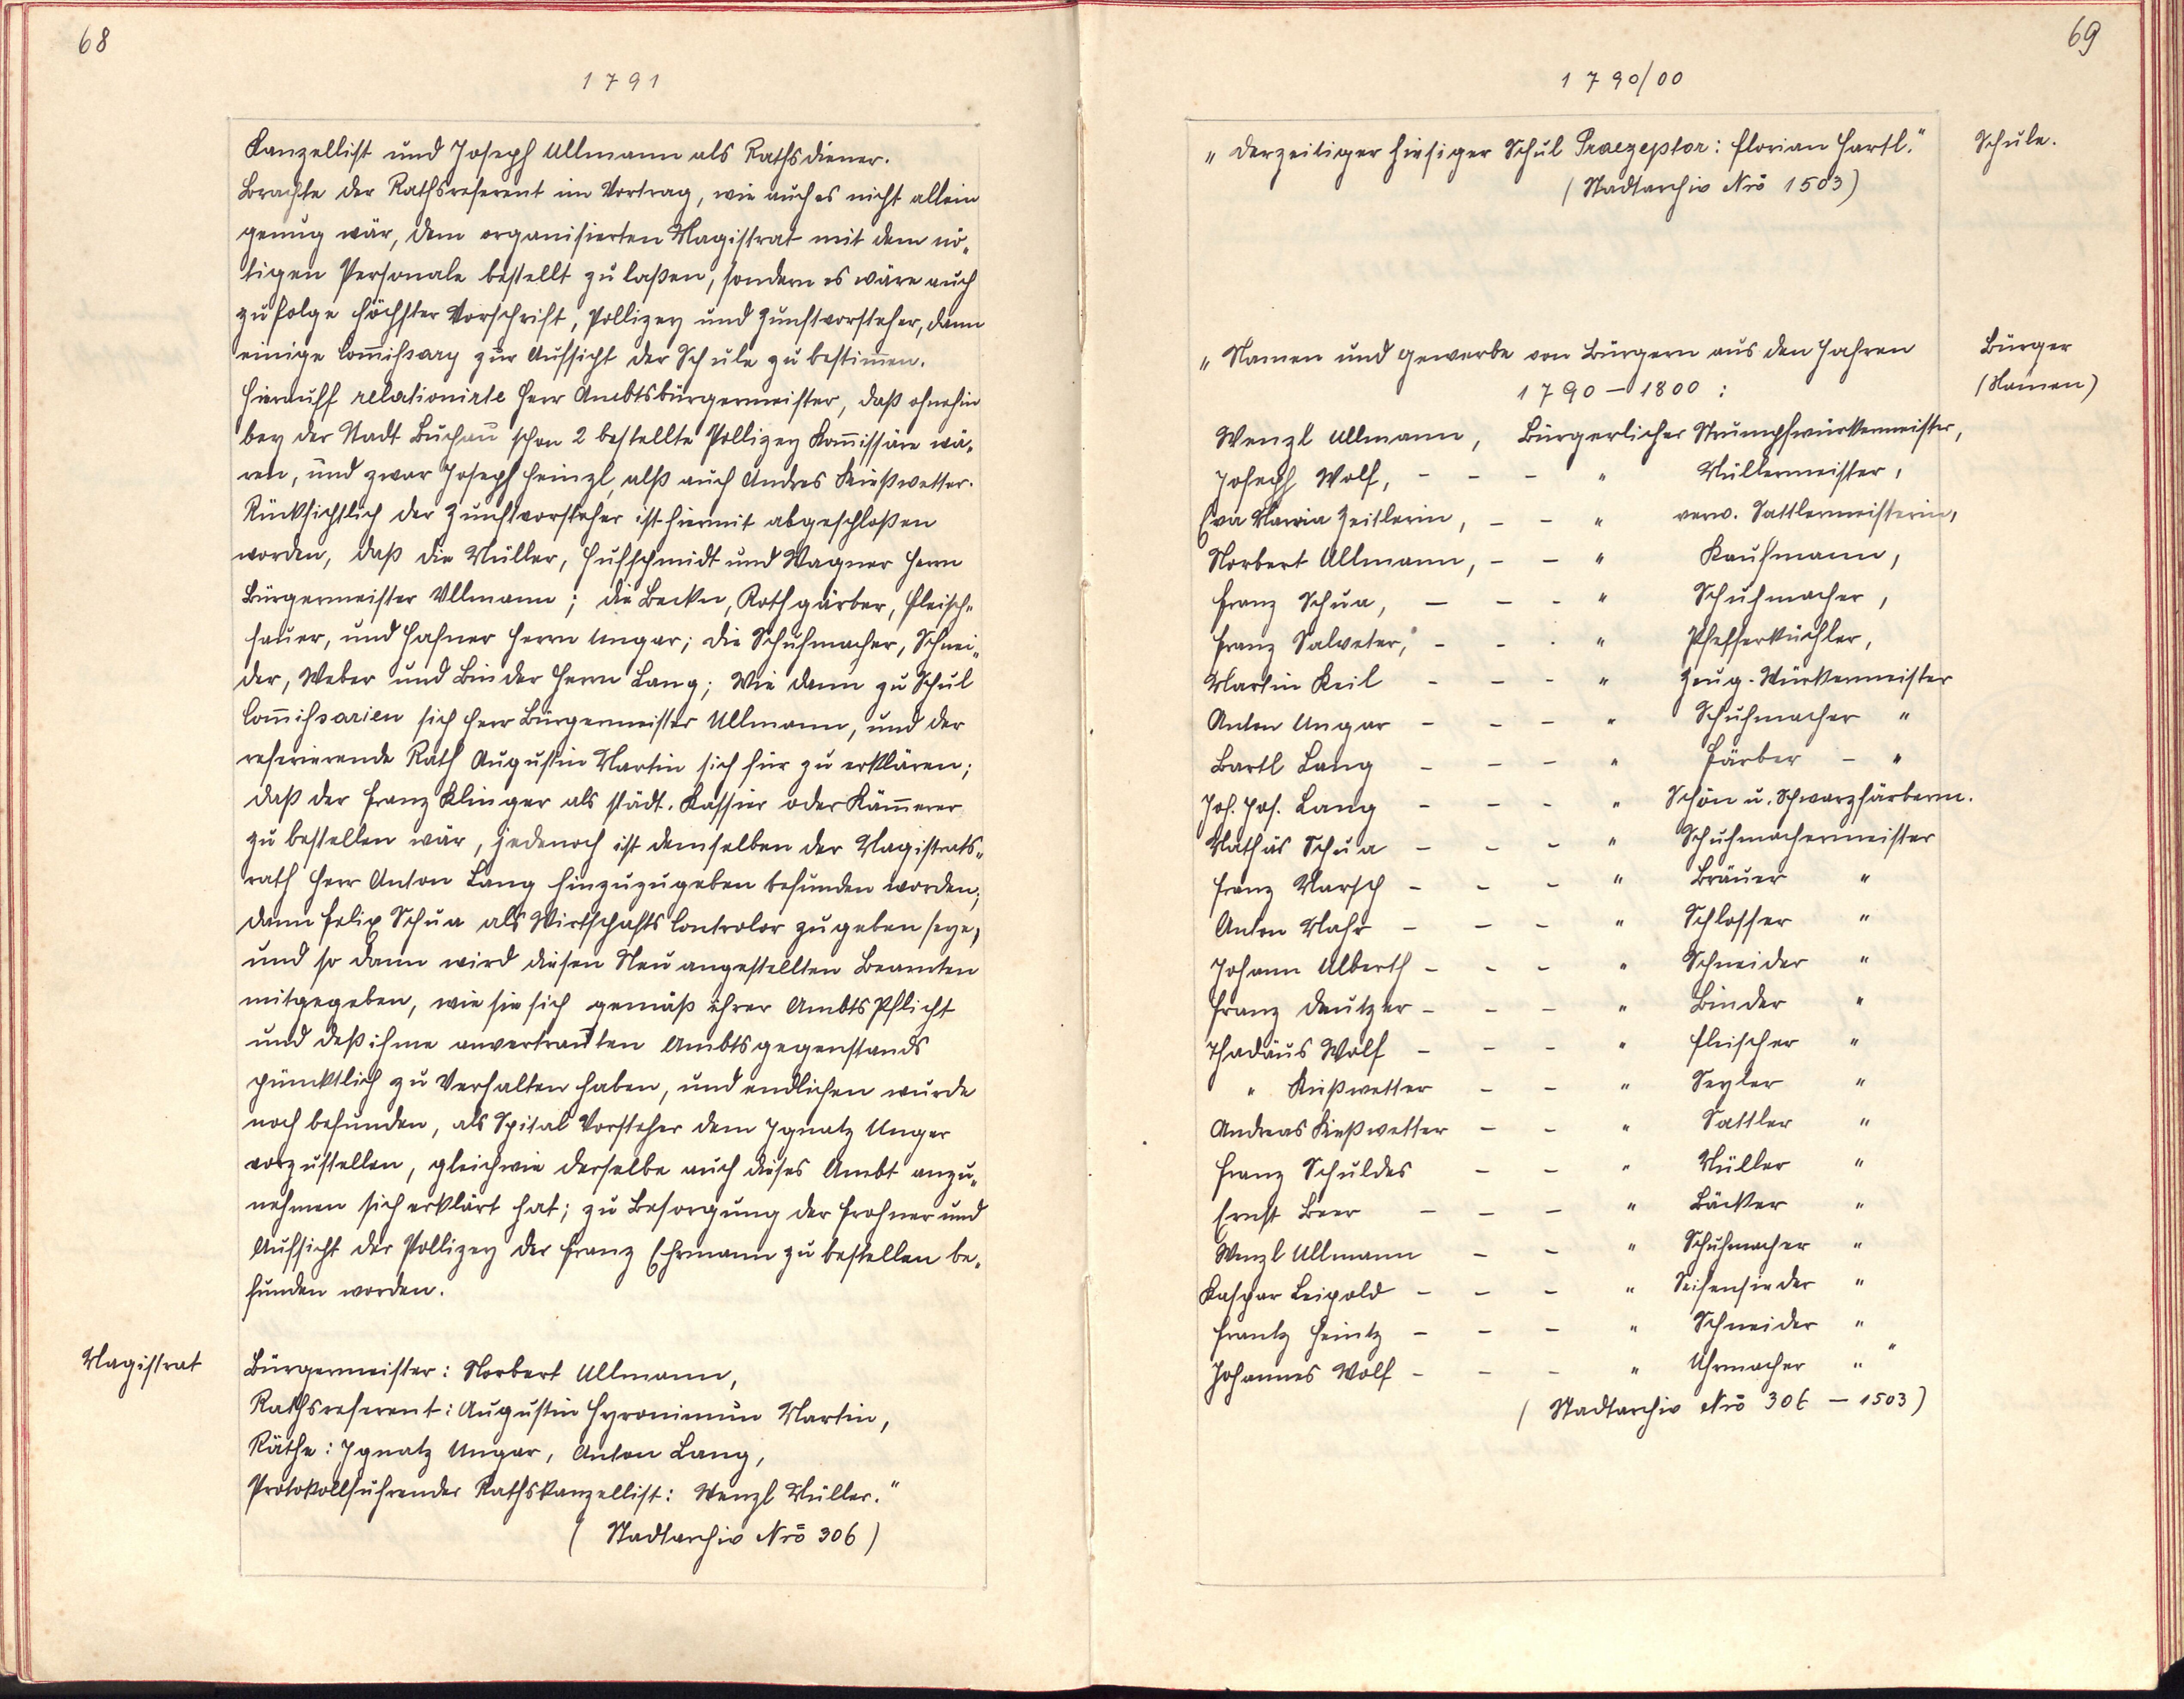 68
1791
Kanzellist und Joseph Ullmann als Rathsdiener.
Brachte der Rathsreferent im Vortrag, wie auch es nicht allein
genug wär, dem organisierten Magistrat mit dem nö„
tigen Personale bestellt zu laßen, sondern es wäre auch
zufolge höchster Vorschrift, Pollizey und Zunftvorsteher, dann
einige Com̅ißary zur Aufsicht der Schule zu bestim̅en.
Hierauff relationirte Herr Ambtsbürgermeister, daß ohnehin
bey der Stadt Buchau schon 2 bestellte Pollizey Kom̅issäre wä„
ren, und zwar Joseph Heinzl, alß auch Andres Kießwetter.
Rücksichtlich der Zunftvorsteher ist hiermit abgeschloßen
worden, daß die Müller, Hufschmidt und Wagner Herrn
Bürgermeister Ullmann; die Becker, Rothgärber, Fleisch„
hauer, und Hafner Herrn Ungar; die Schuhmacher, Schnei„
der, Weber und Binder Herrn Lang; Wie dann zu Schul
Com̅ißarien sich Herr Bürgermeister Ullmann, und der
referierende Rath Augustin Martin sich hier zu erklären;
daß der Franz Klinger als städt. Kassier oder Käm̅erer
zu bestellen wär, jedennoch ist demselben der Magistrats„
rath Herr Anton Lang hinzuzugeben befunden worden;
dann Felix Schua als Wirtschafts Controlor zugeben seye,
und so dann wird diesen Neu angestellten Beamten
mitgegeben, wie sie sich gemäß ihrer Ambts Pflicht
und deß ihme anvertrauten Ambtsgegenstands
pünktlich zu Verhalten haben, und endlichen wurde
noch befunden, als Spital Vorsteher dem Ignatz Unger
vorzustellen, gleichwie derselbe auch dieses Ambt anzu„
nehmen sich erklärt hat; zu Besorgung der Frohner und
Aufsicht der Pollizey der Franz Ehrmann zu bestellen be„
funden worden.
Magistrat
Bürgermeister: Norbert Ullmann,
Rathsreferent: Augustin Hyronimun Martin,
Räthe: Ignatz Ungar, Anton Lang,
Protokollführender Rathskanzellist: Wenzl Müller."
( Stadtarchiv Nrō 306 )
69
1790/00
„ Derzeitiger hiesiger Schul Praezeptor: Florian Hartl." Schule.
( Stadtarchiv Nrō 1503 )
„ Namen und Gewerbe von Bürgern aus den Jahren Bürger
1790 – 1800 : (Namen)
Wenzl Ullmann, Bürgerlicher Strumpfwürkermeister,
Joseph Wolf, - - - " Müllermeister,
Eva Maria Zeitlerin, - - " verw. Sattlermeisterin,
Norbert Ullmann, - - " Kaufmann,
Franz Schua, - - - " Schuhmacher,
Franz Salveter, - - - " Pfefferküchler,
Martin Keil - - - " Zeug-Würkermeister
Anton Ungar - - - " Schuhmacher "
Bartl Lang - - - " Färber - "
Joh. Jos. Lang - - - " Schön u. Schwarzfärberm.
Mathäs Schua - - - " Schuhmachermeister
Franz Marsch - - - " Bräuer "
Anton Mahr - - - " Schlosser "
Johann Alberth - - - " Schneider "
Franz Deutzer - - - " Binder "
Thadäus Wolf - - - " Fleischer "
" Kießwetter - - " Seyler "
Andreas Kießwetter - - " Sattler "
Franz Schuldes - - " Müller "
Ernst Beer - - - " Bäcker "
Wenzl Ullmann - - " Schuhmacher "
Kaspar Leipold - - - " Seifensieder "
Frantz Heintz - - - " Schneider "
Johannes Wolf - - - " Uhrmacher " "
( Stadtarchiv Nrō 306 – 1503 )